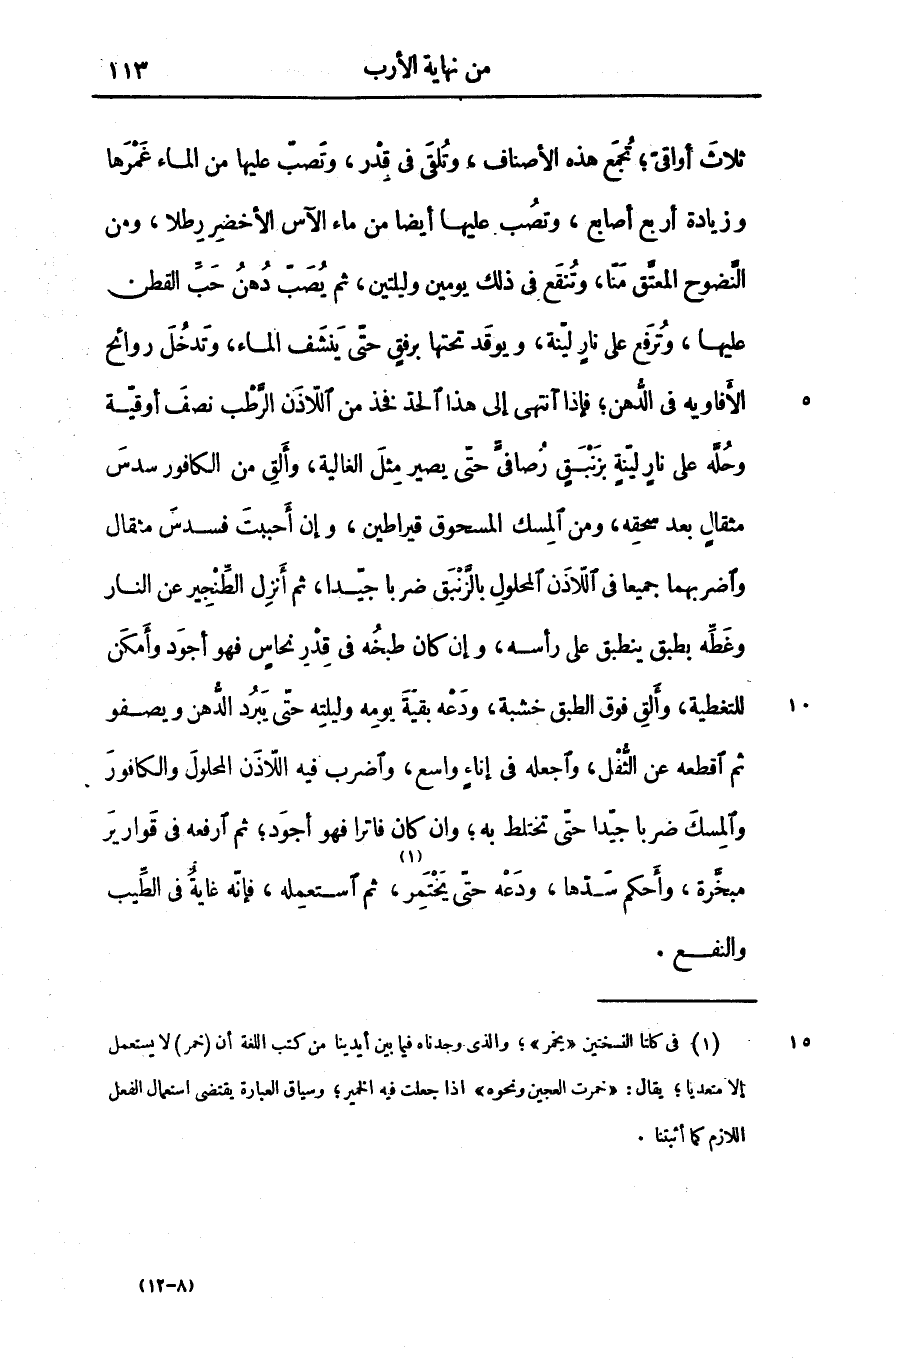 من نهاية الأرب ١١٣
ثلاثَ أواقىّ؛ تُجمَع هذه الأصناف، وتُلقَى فى قِدْر، وتَصبّ عليها من المـاء غَمْرَها
وزيادة أربع أصابع، وتصُب عليهـا أيضا من ماء الآس الأخضرِ رِطلا، ومن
النَّضوح المعتَّق مَنّا، وتُنقَع فى ذلك يومين وليلتين، ثم يُصَبّ دُهنُ حَبِّ القطن
عليهـا، وتُرفَع على نارٍ ليّنة، ويوقَد تحتها برفقٍ حتّى يَنشَف المـاء، وتَدخُلَ روائح
الأَفاويه فى الدُّهن؛ فإذا ٱنتهى إلى هذا ٱلحدّ فخذ من ٱللّاذَن الرَّطْب نصفَ أوقيّـة ٥
وحُلَّه على نارٍ ليّنةٍ بزَنْبَـقٍ رُصافىٍّ حتّى يصير مِثلَ الغالية، وأَلقِ من الكافور سدسَ
مثقالٍ بعد سحقِه، ومن ٱلمِسك المسحوق قيراطين، وإن أحببتَ فسـدسَ مثقال
وٱضربهما جميعا فى ٱللّاذَن ٱلمحلولِ بالزَّنْبَق ضربا جيّـدا، ثم أَنزِل الطِّنْجير عن النـار
وغَطِّه بطبق ينطبق على رأسـه، وإن كان طبخُه فى قِدْرِ نحاسٍ فهو أجوَد وأَمكَن
للتغطية، وأَلقِ فوق الطبق خشبة، ودَعْه بقيّةَ يومِه وليلتِه حتّى يَبرُد الدُّهن ويصـفو ١٠
ثم ٱقطعه عن الثُّفْل، وٱجعله فى إناءٍ واسع، وٱضرب فيه اللّاذَن المحلولَ والكافورَ
وٱلمِسكَ ضربا جيّدا حتّى تختلط به؛ وان كان فاترا فهو أجوَد؛ ثم ٱرفعه فى قواريرَ
مبخَّرة، وأَحكم سَـدّها، ودَعْه حتّى يَخْتَمِر(١)، ثم ٱسـتعمله، فإنّه غايةٌ فى الطِّيب
والنفـــع.
(١) فى كلتا النسختين «يخمر»؛ والذى وجدناه فيما بين أيدينا من كتب اللغة أن (خمر) لا يستعمل ١٥
إلا متعديا؛ يقال: «خمرت العجين ونحوه» اذا جعلت فيه الخمير؛ وسياق العبارة يقتضى استعمال الفعل
اللازم كما أثبتنا.
(٨-١٢)